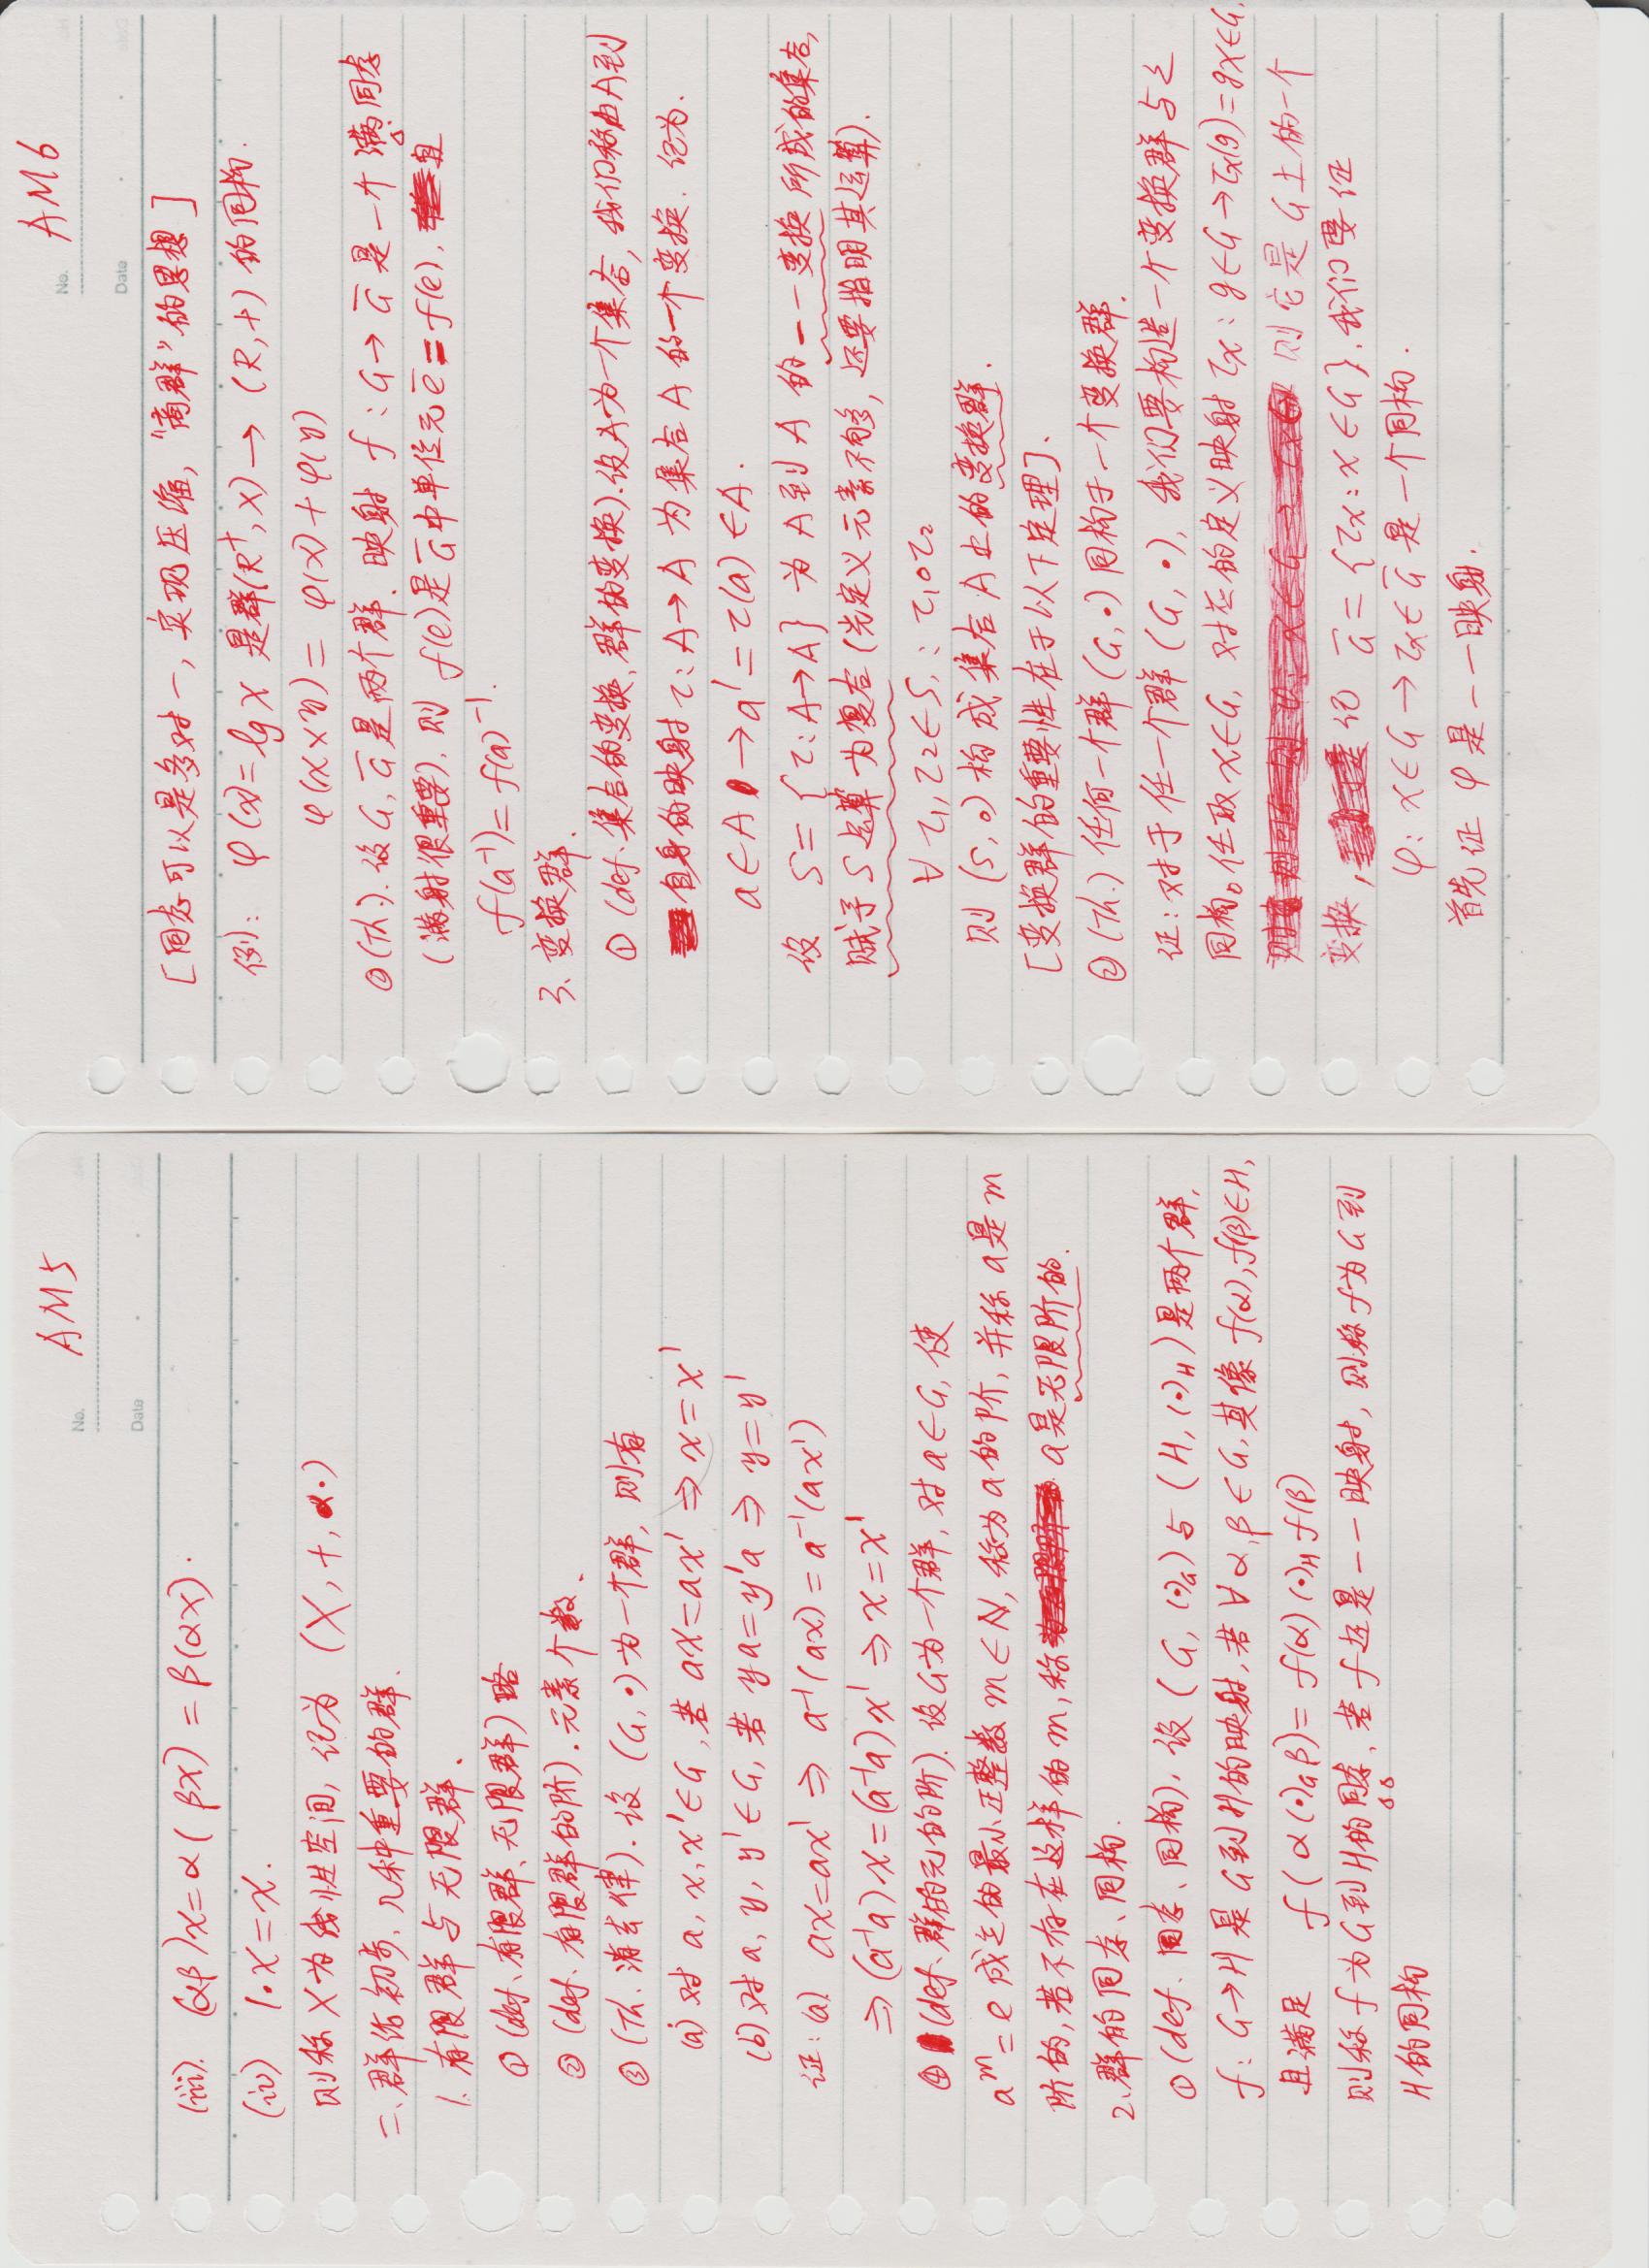 No. AM5
Date
(iii). (αβ)x=α(βx)=β(αx).
(iv) 1·x=x.
则称X为线性空间, 记为 (X, +, α·)
二、群论初步、几种重要的群.
1. 有限群与无限群.
① (def、有限群、无限群) 略
② (def. 有限群的阶). 元素个数.
③ (Th. 消去律). 设 (G, ·) 为一个群, 则有
(a) 对 a, x, x'∈G, 若 ax=ax' ⇒ x=x'
(b) 对 a, y, y'∈G, 若 ya=y'a ⇒ y=y'
证: (a). ax=ax' ⇒ a⁻¹(ax)=a⁻¹(ax')
⇒ (a⁻¹a)x=(a⁻¹a)x' ⇒ x=x'
④ (def、群的元的阶). 设G为一个群, 对a∈G, 使
aᵐ=e 成立的最小正整数 m∈N, 称为a的阶, 并称a是m
阶的, 若不存在这样的m, 称 a是无限阶的.
2、群的同态、同构.
① (def. 同态、同构), 设 (G, (·)G) 与 (H, (·)H) 是两个群,
f: G→H 是G到H的映射, 若∀α,β∈G, 其像 f(α), f(β)∈H,
且满足 f(α(·)Gβ)=f(α)(·)H f(β)
则称f为G到H的同态, 若f还是一一映射, 则称f为G到
H的同构
No. AM6
Date
[同态可以是多对一, 实现压缩, "商群"的思想]
例: φ(x)=lg x 是群(R⁺, ×)→(R, +) 的同构.
φ(x×y)=φ(x)+φ(y)
② (Th.). 设G, G̅是两个群. 映射 f: G→G̅ 是一个满同态
(满射很重要). 则 f(e)是G̅中单位元e̅=f(e), 且
f(a⁻¹)=f(a)⁻¹.
3、变换群.
① (def. 集合的变换、群的变换). 设A为一个集合, 我们称由A到
自身的映射τ: A→A 为集合A的一个变换. 记为.
a∈A→a'=τ(a)∈A.
设 S={τ: A→A} 为A到A的一一变换所成的集合,
赋予S运算为复合 (光定义元素不够多, 还要指明其运算).
∀τ₁, τ₂∈S, : τ₁∘τ₂
则 (S, ∘) 构成集合A上的变换群.
[变换群的重要性在于以下定理].
② (Th.) 任何一个群 (G, ·) 同构于一个变换群.
证: 对于任一个群 (G, ·), 我们要构造一个变换群与之
同构。任取x∈G, 对应的定义映射 τx: g∈G→τx(g)=gx∈G,
则它是G上的一个
变换, 记 G̅={τx: x∈G}, 我们要证
φ: x∈G→τx∈G̅ 是一个同构.
首先证 φ是一一映射.